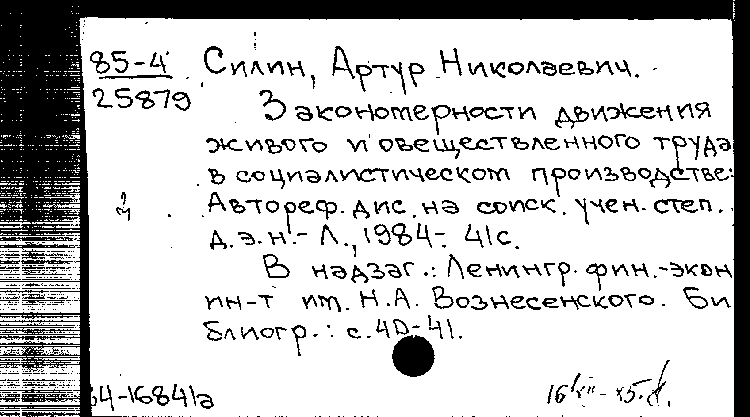 85-4 Силин, Артур Николаевич.
25879
Закономерности движения
живого и овеществленного труда
в социалистическом производстве:
Автореф. дис. на соиск. учен. степ.
д.э.н.- Л., 1984- 41с.
В надзаг.: Ленингр. фин.-экон
ин-т им. Н.А. Вознесенского. Би
блиогр.: с.40-41.
84-16841а